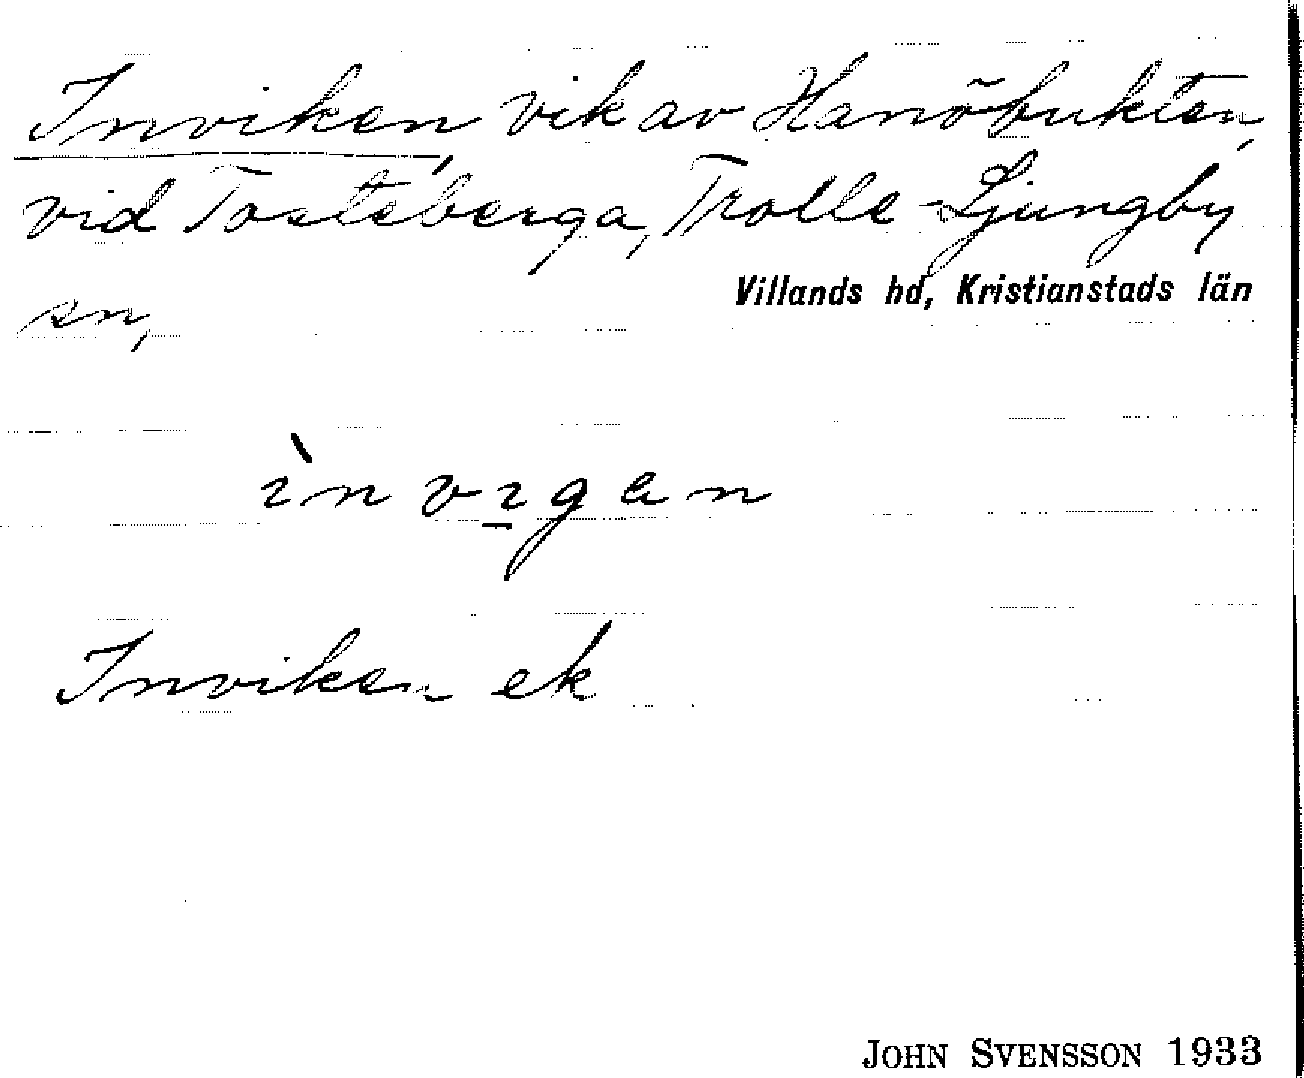 Inviken, vik av Hanöbukten,
vid Tosteberga, Trolle-Ljungby
sn, Villands hd, Kristianstads län
ìnvıgan
Inviken ek
JOHN SVENSSON 1933